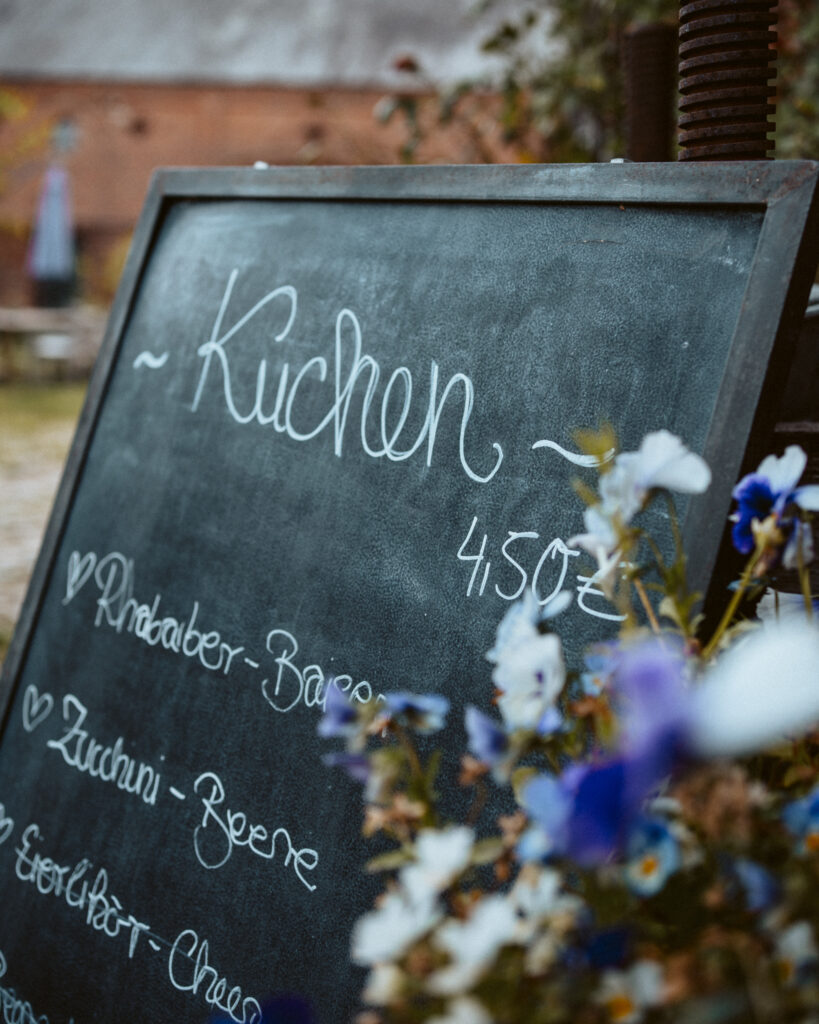 ~ Kuchen ~
4,50€
♡ Rhabarber-Baiser
♡ Zucchini - Beere
♡ Eierlikör-Chees